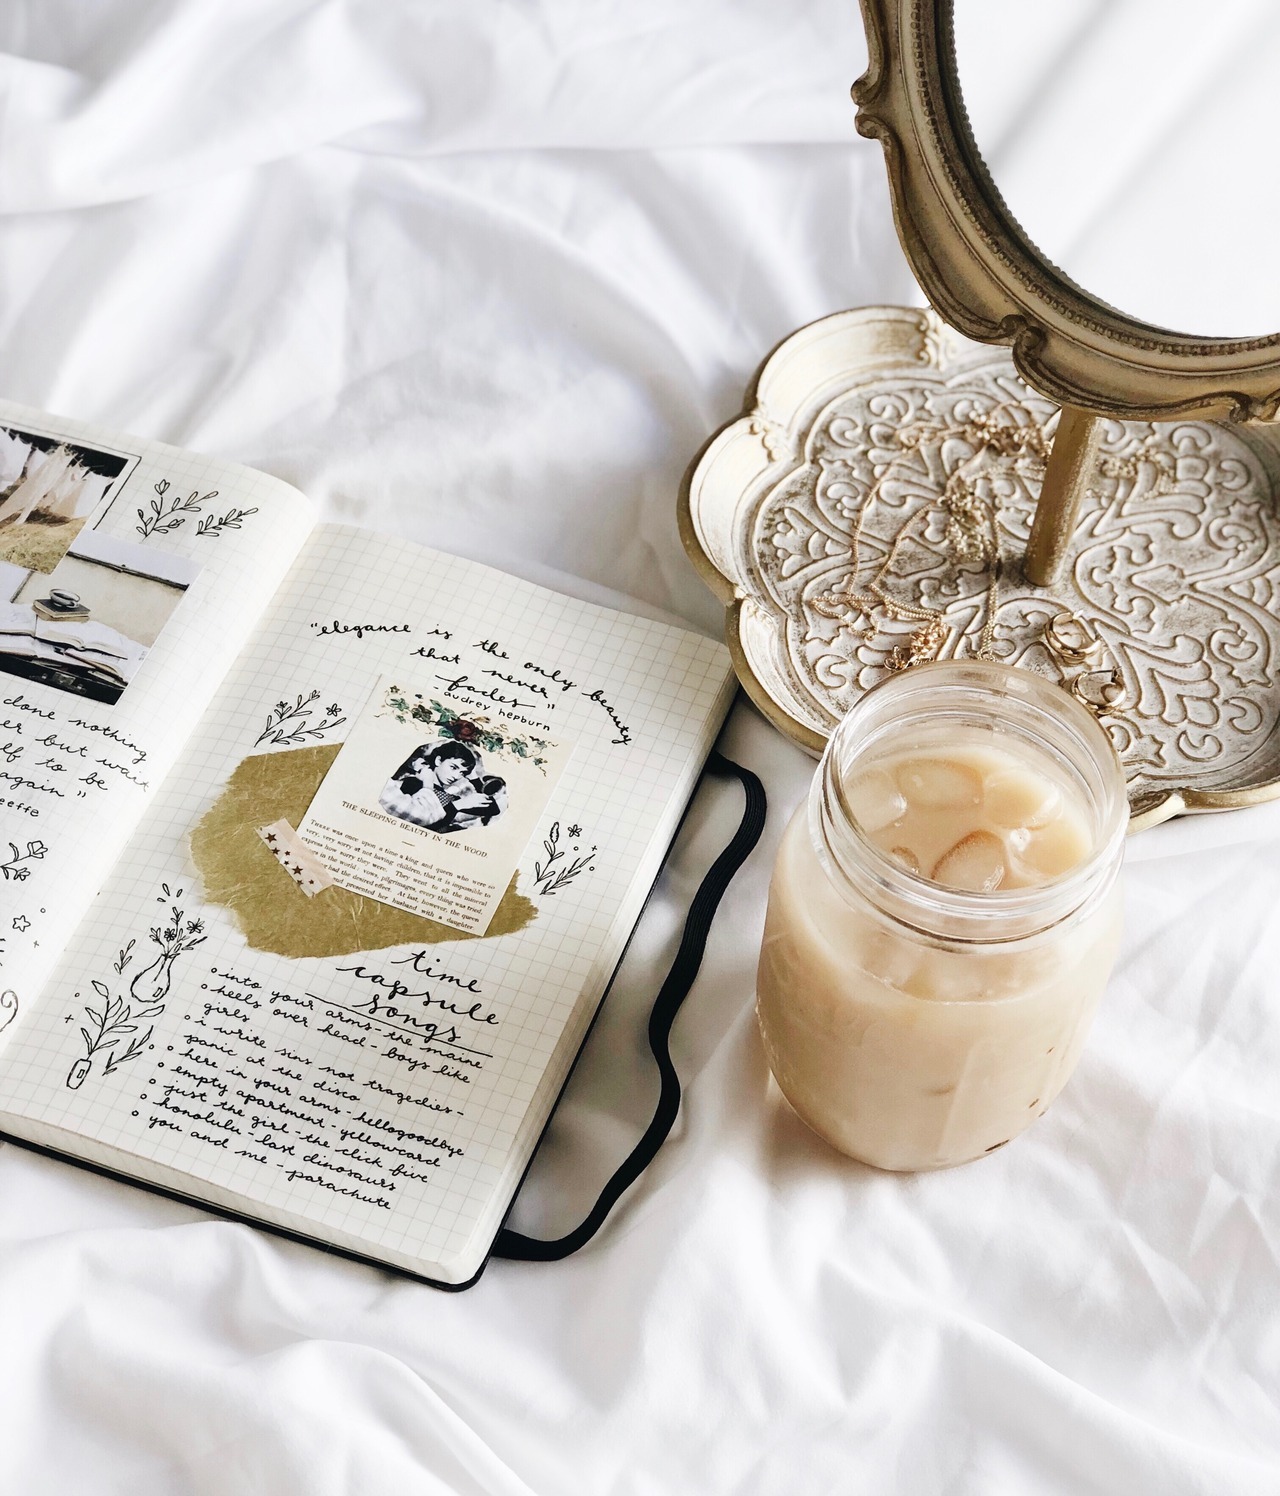 done nothing
er but wait
lf to be
again"
eeffe
"elegance is the only beauty
that never
fades"
-audrey hepburn
THE SLEEPING BEAUTY IN THE WOOD
There was once upon a time a king and queen who were so
very, very sorry at not having children, that it is impossible to
express how sorry they were. They went to all the mineral
in the world; vows, pilgrimages, every thing was tried,
had the desired effect. At last, however, the queen
and presented her husband with a daughter
time
capsule
songs
o into your arms-the maine
o heels over head - boys like
girls
o i write sins not tragedies-
panic at the disco
o here in your arms-hellogoodbye
o empty apartment-yellowcard
o just the girl-the click five
o honolulu-last dinosaurs
o you and me -parachute